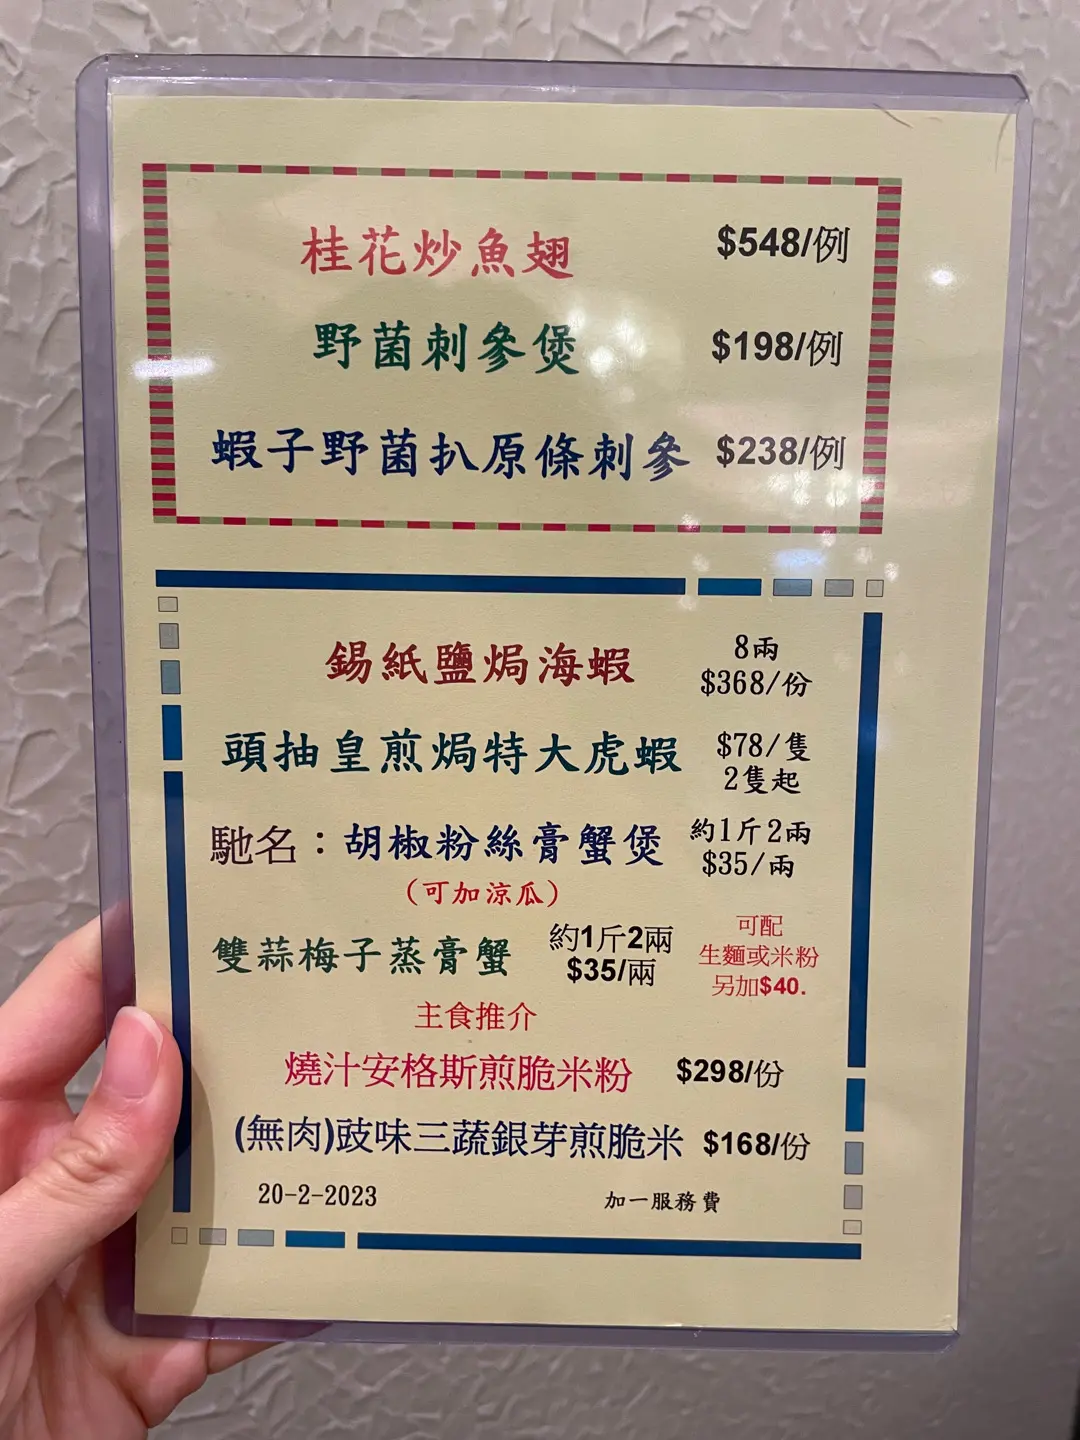 桂花炒魚翅 $548/例
野菌刺參煲 $198/例
蝦子野菌扒原條刺參 $238/例
錫紙鹽焗海蝦 8兩 $368/份
頭抽皇煎焗特大虎蝦 $78/隻 2隻起
馳名：胡椒粉絲膏蟹煲 約1斤2兩 $35/兩
(可加涼瓜)
雙蒜梅子蒸膏蟹 約1斤2兩 $35/兩 可配生麵或米粉另加$40.
主食推介
燒汁安格斯煎脆米粉 $298/份
(無肉)豉味三蔬銀芽煎脆米 $168/份
20-2-2023 加一服務費